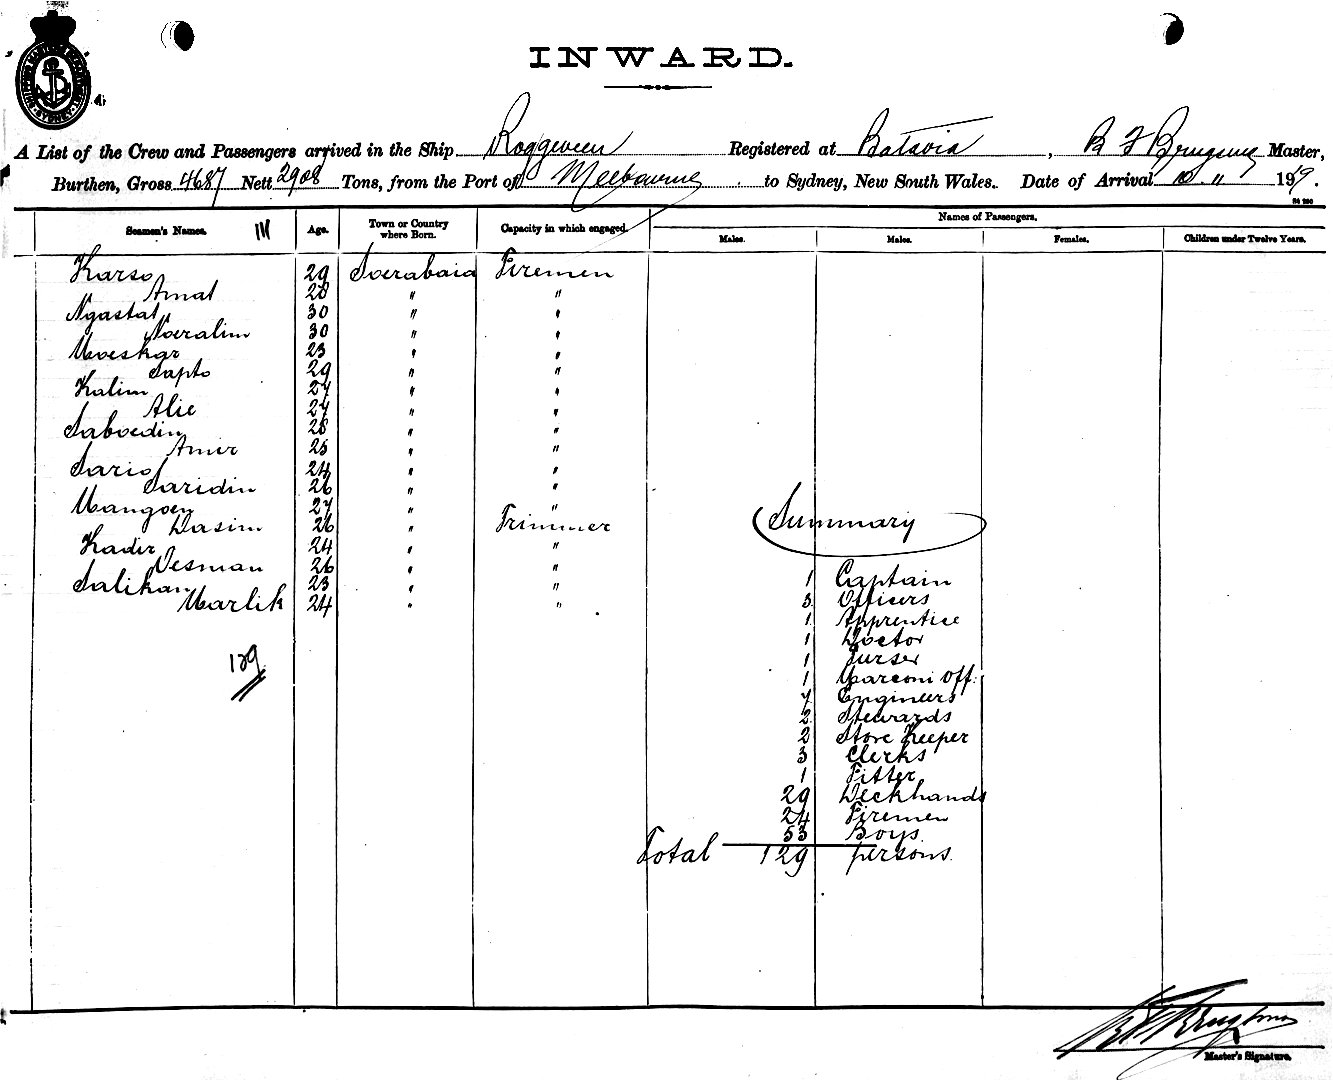 INWARD.
A List of the Crew and Passengers arrived in the Ship Roggeveen Registered at Batavia, B F Brugsma Master,
Burthen, Gross 4687 Nett 2908 Tons, from the Port of Melbourne to Sydney, New South Wales. Date of Arrival 10 . 11 1919.
Names of Passengers.
Seamen's Names. Age. Town or Country where Born. Capacity in which engaged. Males. Males. Females. Children under Twelve Years.
Karso 29 Soerabaia Firemen
Amat 28 " "
Ngastat 30 " "
Noeralim 30 " "
Moeskar 23 " "
Sapto 29 " "
Kalim 27 " "
Alie 27 " "
Saboedin 28 " "
Amir 25 " "
Sario 24 " "
Saridin 26 " "
Mangoen 27 " "
Dasim 26 " Trimmer
Kadir 24 " "
Oesman 26 " "
Salikan 23 " "
Marlik 24 " "
129
Summary
1 Captain
3 Officers
1 Apprentice
1 Doctor
1 Purser
1 Marconi Off.
7 Engineers
2 Stewards
2 Store Keeper
3 Clerks
1 Fitter
29 Deckhands
24 Firemen
53 Boys
Total 129 persons.
Master's Signature.